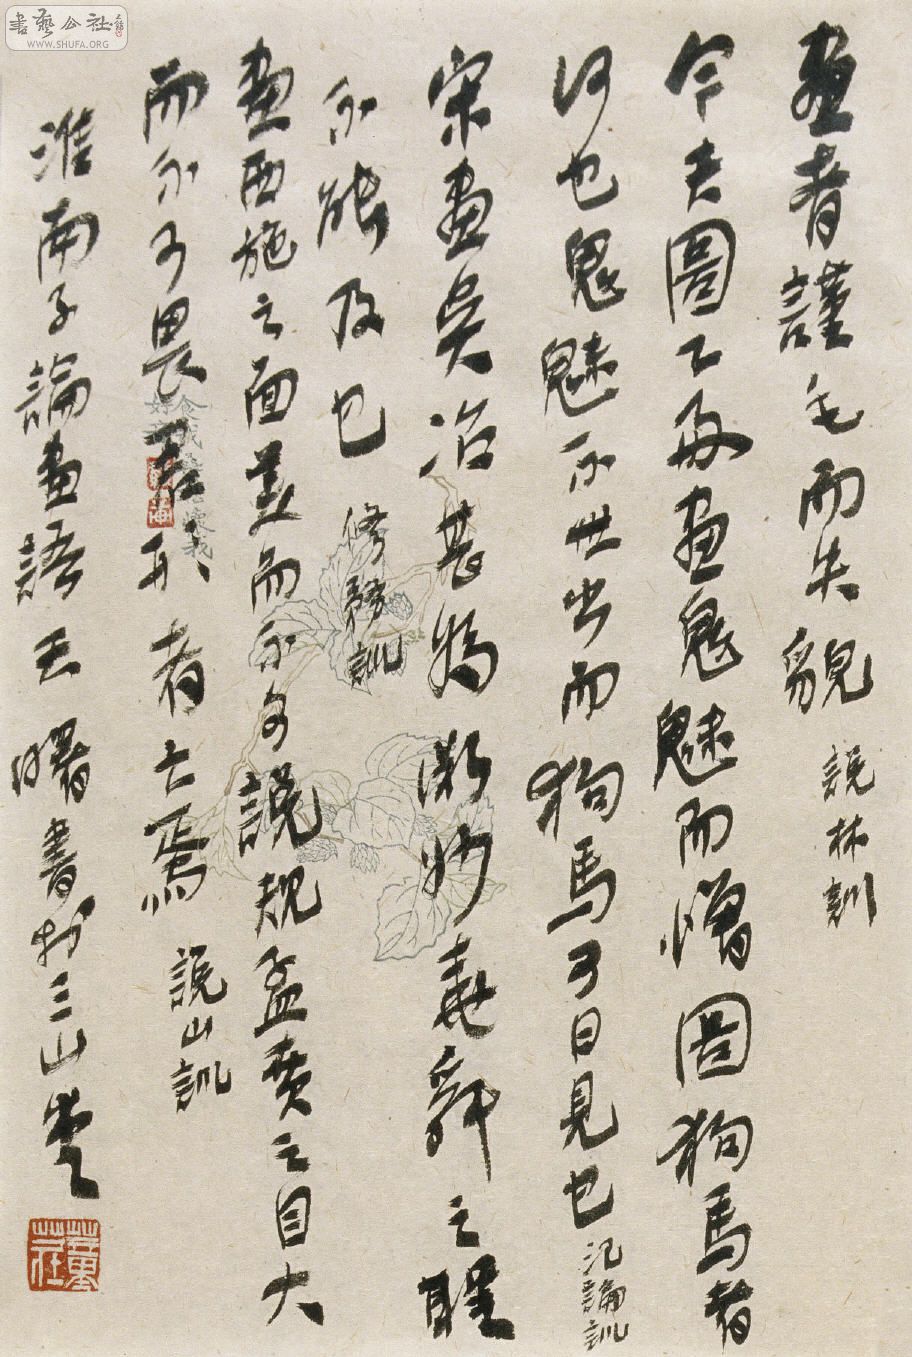 書藝公社
WWW.SHUFA.ORG
畫者謹毛而失貌 說林訓
今夫圖工好畫鬼魅而憎圖狗馬者
何也鬼魅不世出而狗馬可日見也 氾論訓
宋畫吳冶甚為微妙堯舜之聖
不能及也 修務訓
畫西施之面美而不可說規孟賁之目大
而不可畏君形者亡焉 說山訓
淮南子論畫語 王曙書於三山